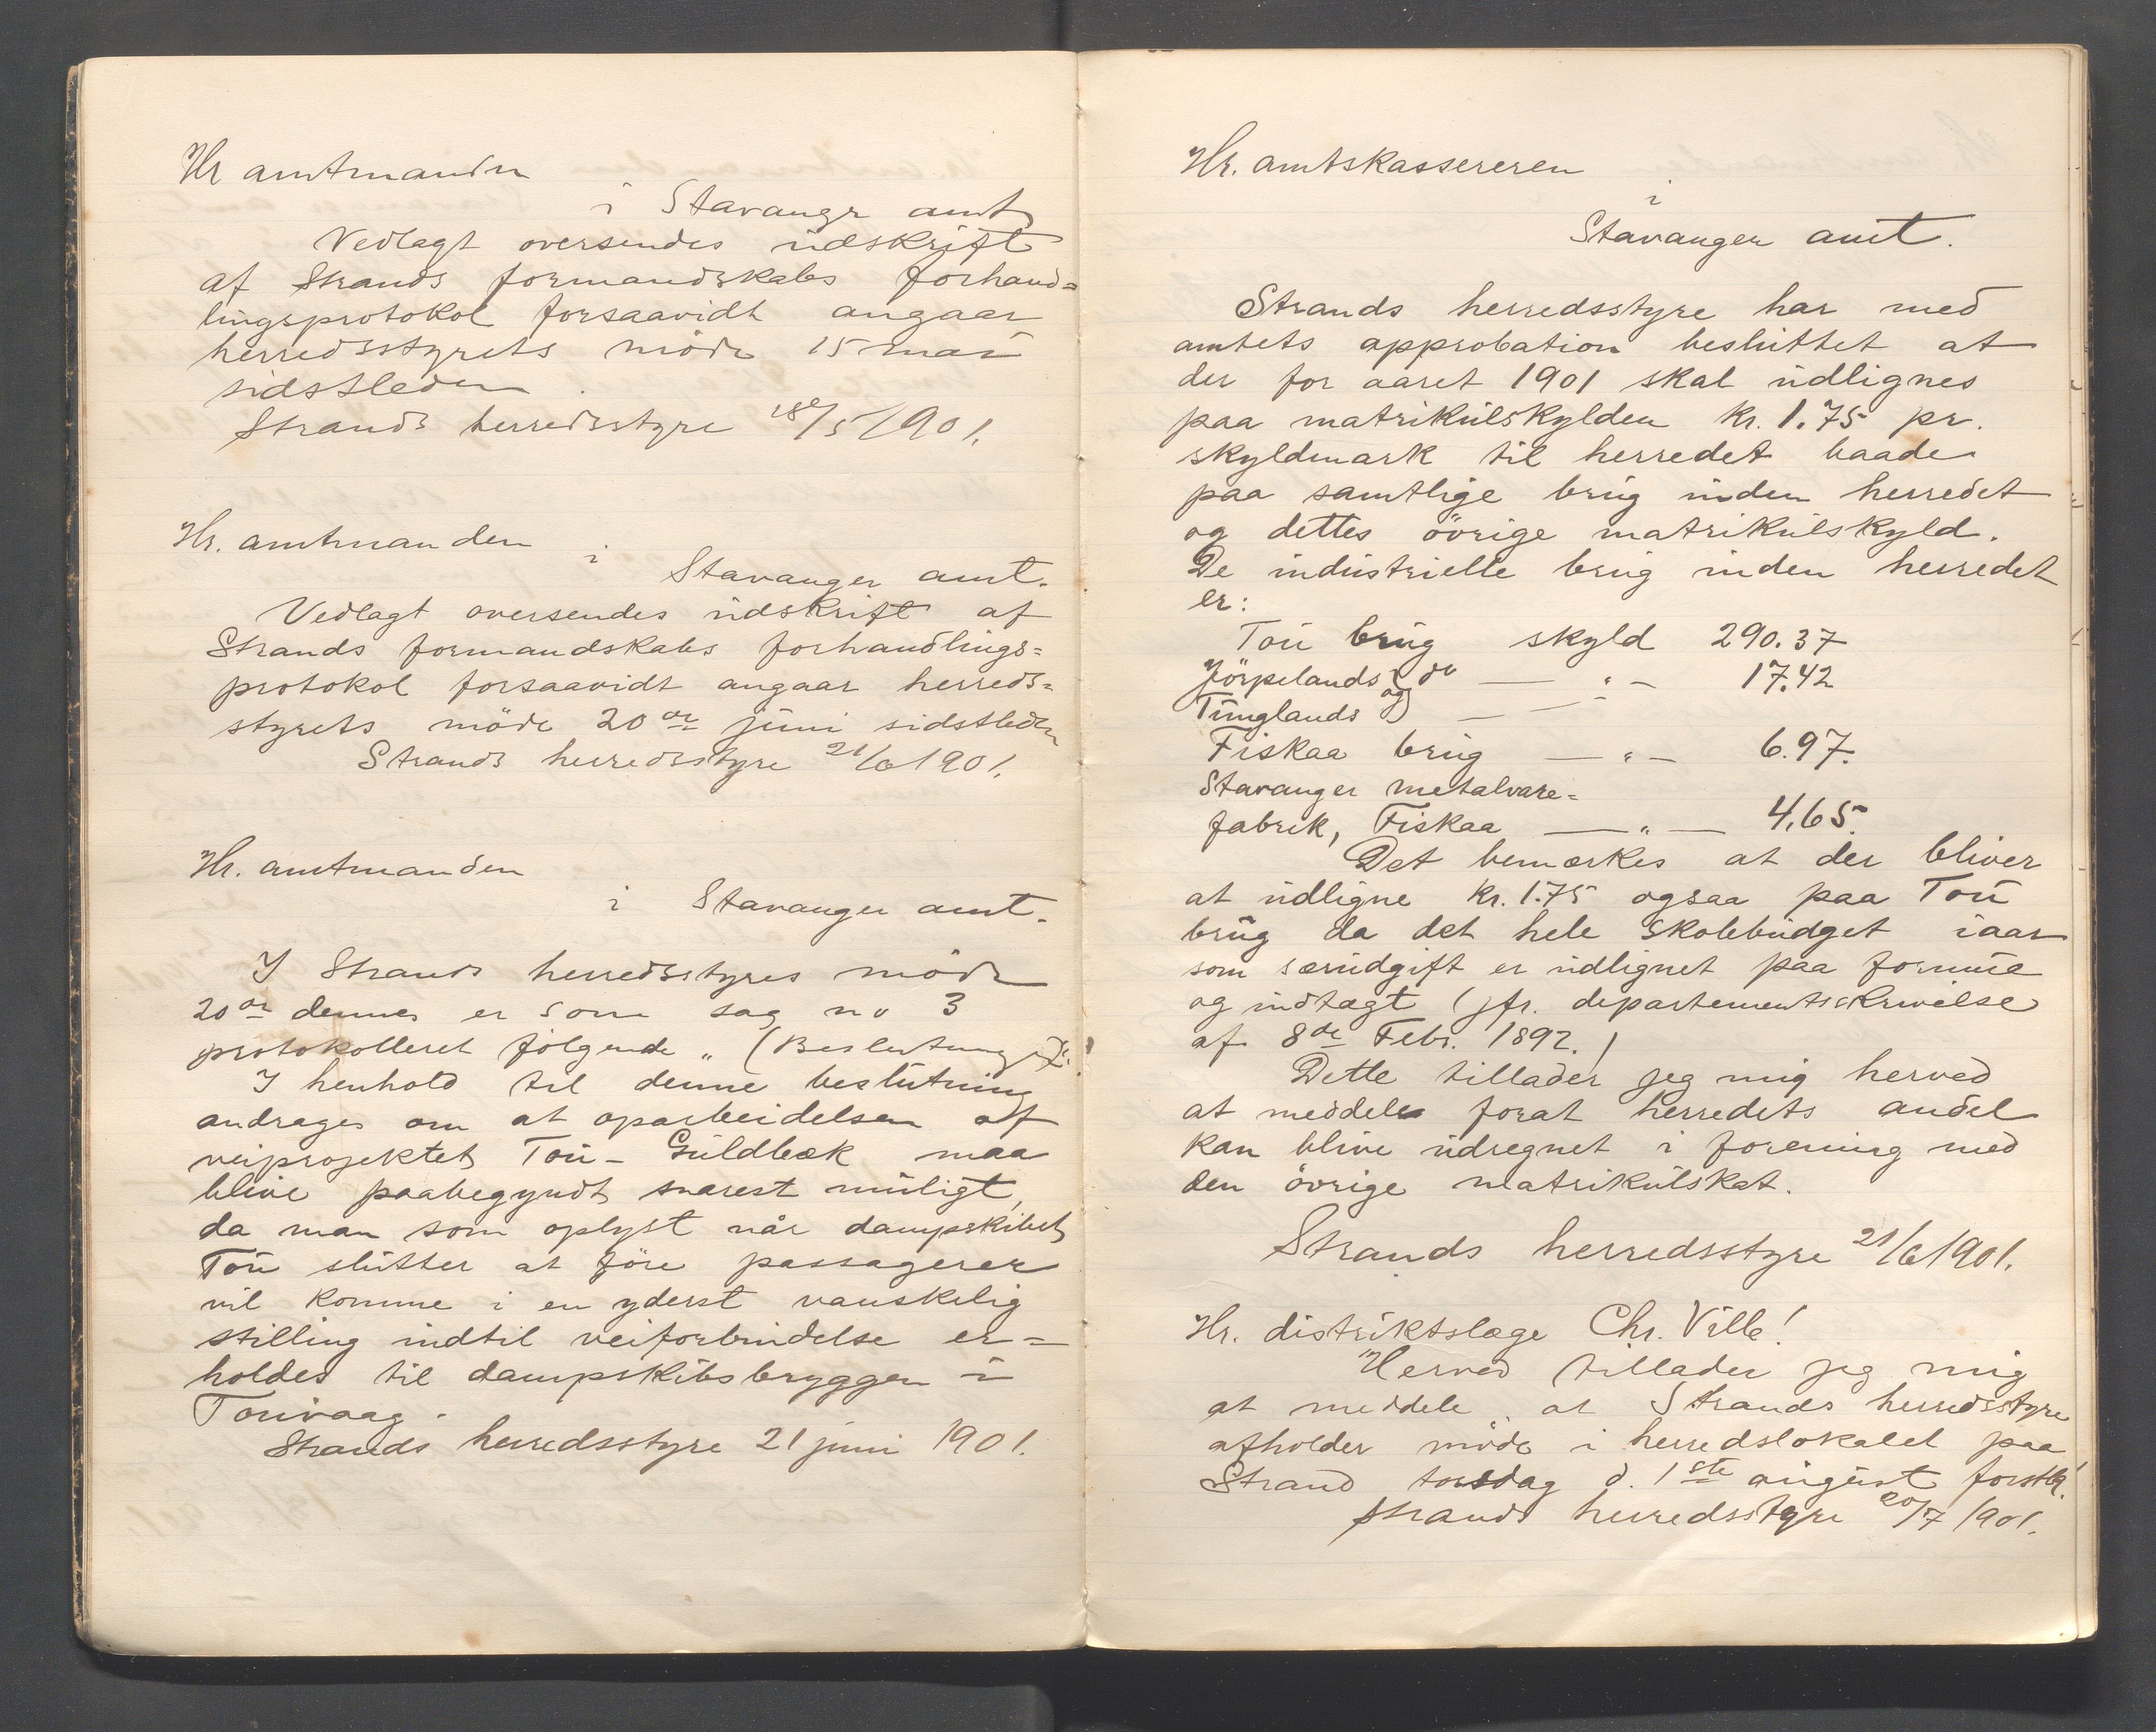 Hr amtmandn
i Stavangr amt
Vedlagt oversendes udskrift
af Strands formandskabs forhand=
lingsprotokol forsaavidt angaar
herredsstyrets möde 15 mai
sidstleden
Strands herredsstyre 18/5 1901.
Hr. amtmanden
i Stavanger amt.
Vedlagt oversendes udskrift af
Strands formandskabs forhandlings=
protokol forsaavidt angaar herreds=
styrets möde 20de juni sidstleden
Strands herredsstyre 21/6 1901.
Hr. amtmanden
i Stavanger amt.
I Strands herredsstyres möde
20de dennes er som sag no 3
protokolleret fölgende „ (Beslutning
I henhold til denne beslutning
andrages om at oparbeidelsen af
veiprojektet Tou - Guldbæk maa
blive paabegyndt snarest muligt,
da man som oplyst når dampskibet
Tou slutter at före passagerer
vil komme i en yderst vanskelig
stilling indtil veiforbindelse er=
holdes til dampskibsbryggen i
Touvaag.
Strands herredsstyre 21 juni 1901.
Hr. amtskassereren
i
Stavanger amt.
Strands herredsstyre har med
amtets approbation besluttet at
der for aaret 1901 skal udlignes
paa matrikulskylden kr. 1.75 pr.
skyldmark til herredet baade
paa samtlige brug inden herredet
og dettes övrige matrikulskyld.
De industrielle brug inden herredet
er:
Tou brug skyld 290.37
Jörpelands do — „ — 17.42
og
Tunglands — —
Fiskaa brug — „ — 6.97.
Stavanger metalvare=
fabrik, Fiskaa — „ — 4,65.
Det bemærkes at der bliver
at udligne kr. 1.75 ogsaa paa Tou
brug da det hele skolebudget iaar
som særudgift er udlignet paa formue
og indtægt (jfr. departementsskrivelse
af 8de Febr. 1892.)
Dette tillader jeg mig herved
at meddele forat herredets andel
kan blive udregnet i forening med
den övrige matrikulskat.
Strands herredsstyre 21/6 1901.
Hr. distriktslæge Chr. Ville!
Herved tillader jeg mig
at meddele at Strands herredsstyre
afholder möde i herredslokalet paa
Strand torsdag d. 1ste august förstk.
Strands herredsstyre 20/7 1901.